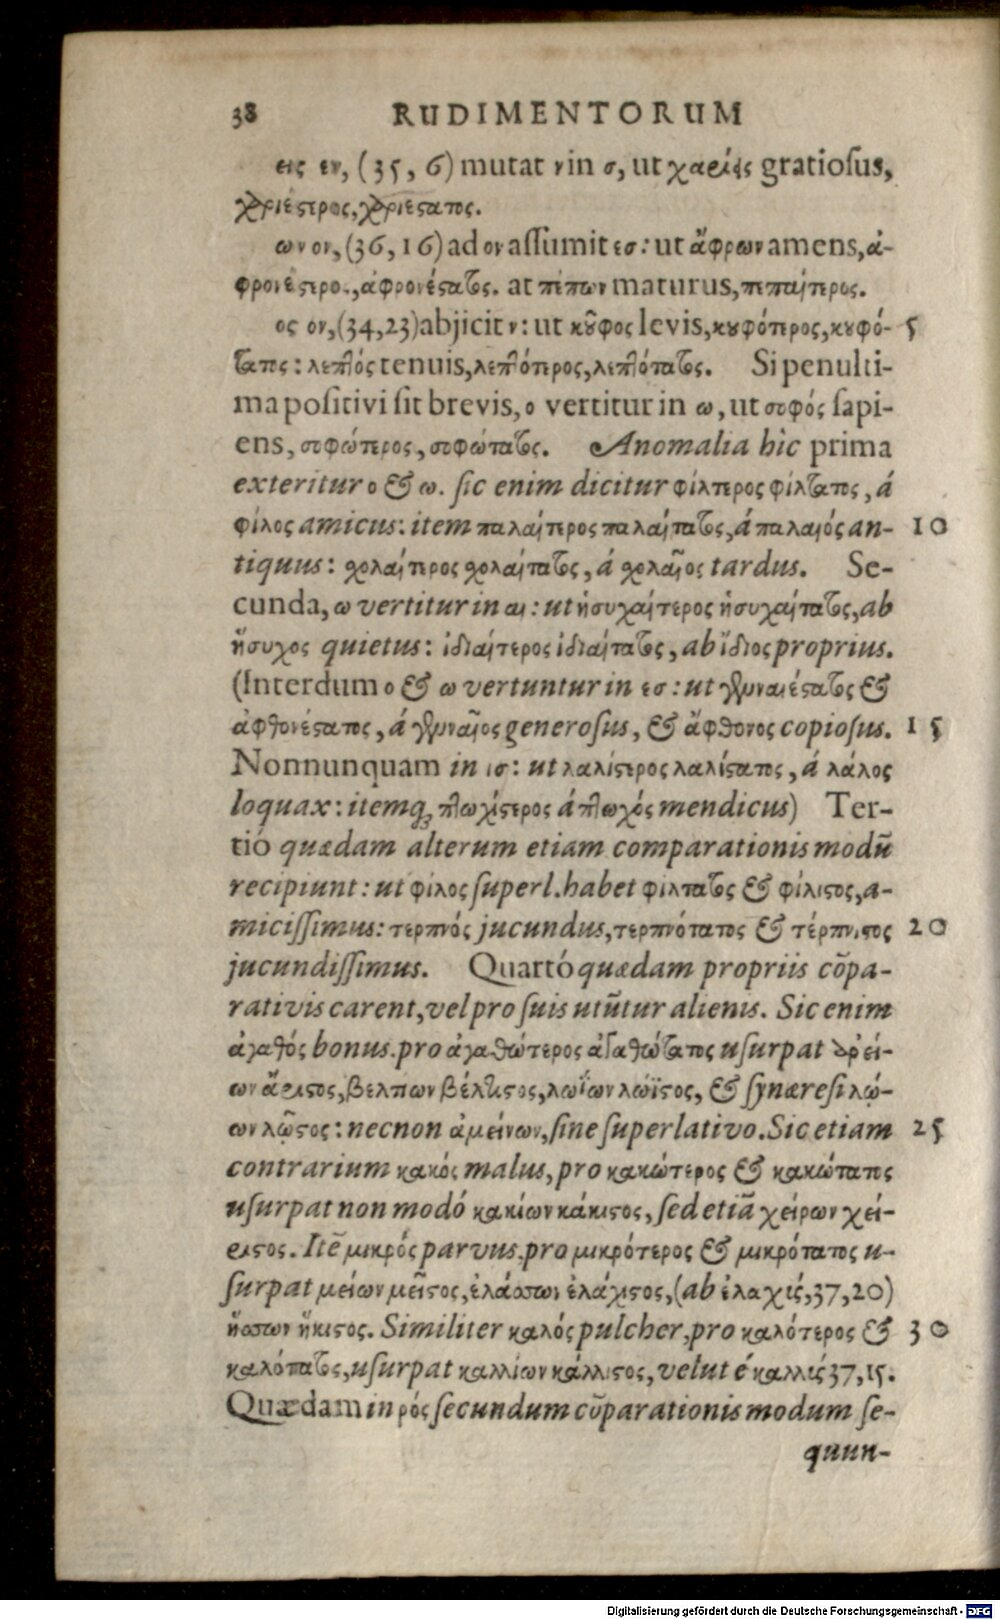 38 RUDIMENTORUM
εις εν, (35, 6) mutat ν in σ, ut χαρίεις gratiosus,
χαριέστερος, χαριέστατος.
ων ον, (36, 16) ad ον assumit εσ: ut ἄφρων amens, ἀ-
φρονέστερος, ἀφρονέστατος. at πέπων maturus, πεπαίτερος.
ος ον, (34, 23) abjicit ν: ut κοῦφος levis, κουφότερος, κουφό- 5
τατος: λεπτός tenuis, λεπτότερος, λεπτότατος. Si penulti-
ma positivi sit brevis, ο vertitur in ω, ut σοφός sapi-
ens, σοφώτερος, σοφώτατος. Anomalia hìc prima
exteritur ο & ω. sic enim dicitur φίλτερος φίλτατος, á
φίλος amicus: item παλαίτερος παλαίτατος, á παλαιός an- 10
tiquus: σχολαίτερος σχολαίτατος, á σχολαῖος tardus. Se-
cunda, ω vertitur in αι: ut ἡσυχαίτερος ἡσυχαίτατος, ab
ἥσυχος quietus: ἰδιαίτερος ἰδιαίτατος, ab ἴδιος proprius.
(Interdum ο & ω vertuntur in εσ: ut γενναιέστατος &
ἀφθονέστατος, á γενναῖος generosus, & ἄφθονος copiosus. 15
Nonnunquam in ισ: ut λαλίστερος λαλίστατος, á λάλος
loquax: itemq; πτωχίστερος á πτωχός mendicus) Ter-
tió quædam alterum etiam comparationis modū
recipiunt: ut φίλος superl. habet φίλτατος & φίλιστος, a-
micissimus: τερπνός jucundus, τερπνότατος & τέρπνιστος 20
jucundissimus. Quartó quædam propriis cōpa-
rativis carent, vel pro suis utūtur alienis. Sic enim
ἀγαθός bonus. pro ἀγαθώτερος ἀγαθώτατος usurpat ἀρεί-
ων ἄριστος, βελτίων βέλτιστος, λωΐων λώϊστος, & synæresi λῴ-
ων λῷστος: necnon ἀμείνων, sine superlativo. Sic etiam 25
contrarium κακός malus, pro κακώτερος & κακώτατος
usurpat non modó κακίων κάκιστος, sed etiā χείρων χεί-
ριστος. Itē μικρός parvus. pro μικρότερος & μικρότατος u-
surpat μείων μεῖστος, ἐλάσσων ἐλάχιστος, (ab ἐλαχύς, 37, 20)
ἥσσων ἥκιστος. Similiter καλός pulcher, pro καλότερος & 30
καλότατος, usurpat καλλίων κάλλιστος, velut é καλλύς 37, 15.
Quædam in ρός secundum cōparationis modum se-
quun-
Digitalisierung gefördert durch die Deutsche Forschungsgemeinschaft - DFG